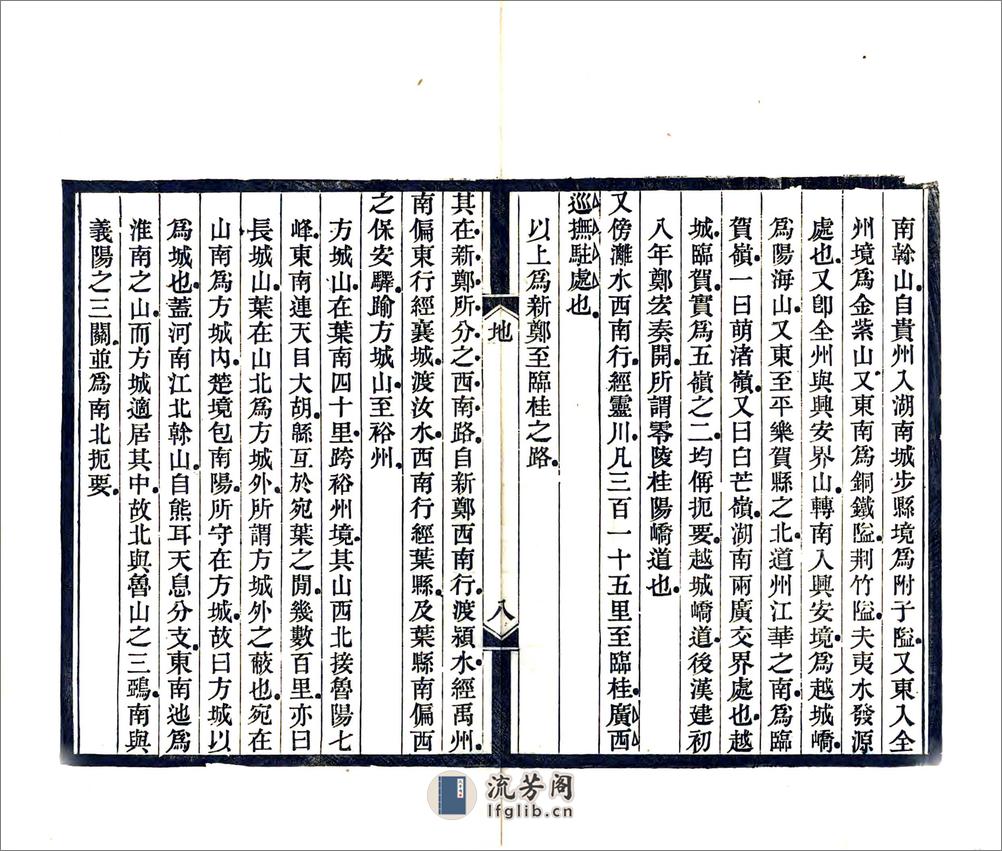 南榦山自貴州入湖南城步縣境爲附子隘又東入全
州境爲金紫山又東南爲銅鐵隘荆竹隘夫夷水發源
處也又卽全州與興安界山轉南入興安境爲越城嶠
爲陽海山又東至平樂賀縣之北道州江華之南爲臨
賀嶺一曰萌渚嶺又曰白芒嶺湖南兩廣交界處也越
城臨賀實爲五嶺之二均偁扼要越城嶠道後漢建初
八年鄭宏奏開所謂零陵桂陽嶠道也
又傍灕水西南行經靈川凡三百一十五里至臨桂廣西
巡撫駐處也
以上爲新鄭至臨桂之路
地
八
其在新鄭所分之西南路自新鄭西南行渡潁水經禹州
南偏東行經襄城渡汝水西南行經葉縣及葉縣南偏西
之保安驛踰方城山至裕州
方城山在葉南四十里跨裕州境其山西北接魯陽七
峰東南連天目大胡緜互於宛葉之閒幾數百里亦曰
長城山葉在山北爲方城外所謂方城外之蔽也宛在
山南爲方城內楚境包南陽所守在方城故曰方城以
爲城也蓋河南江北榦山自熊耳天息分支東南迆爲
淮南之山而方城適居其中故北與魯山之三鵶南與
義陽之三關並爲南北扼要
流芳阁
lfglib.cn